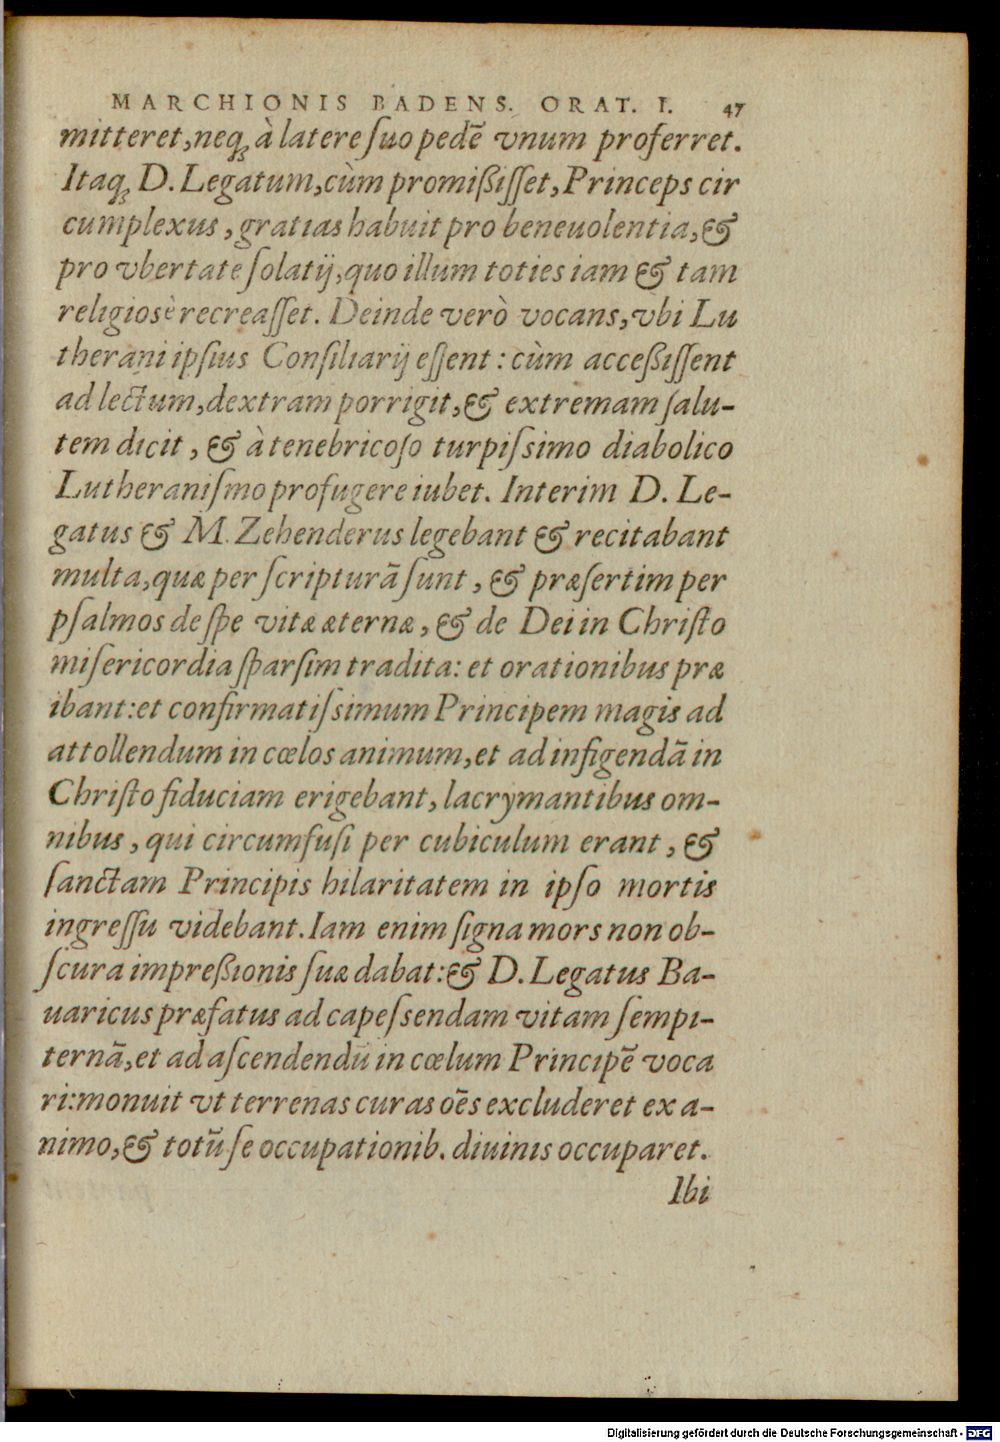 MARCHIONIS BADENS. ORAT. I. 47
mitteret,neq; à latere ſuo pedē vnum proferret.
Itaq; D. Legatum,cùm promißiſſet, Princeps cir
cumplexus, gratias habuit pro beneuolentia, &
pro vbertate ſolatij, quo illum toties iam & tam
religiosè recreaſſet. Deinde verò vocans, vbi Lu
therani ipſius Conſiliarij eſſent: cùm acceßiſſent
ad lectum, dextram porrigit, & extremam ſalu-
tem dicit, & à tenebricoſo turpiſsimo diabolico
Lutheraniſmo profugere iubet. Interim D. Le-
gatus & M. Zehenderus legebant & recitabant
multa, quæ per ſcripturā ſunt, & præſertim per
pſalmos de ſpe vitæ æternæ, & de Dei in Chriſto
miſericordia ſparſim tradita: et orationibus præ
ibant: et confirmatiſsimum Principem magis ad
attollendum in cœlos animum, et ad infigendā in
Chriſto fiduciam erigebant, lacrymantibus om-
nibus, qui circumfuſi per cubiculum erant, &
ſanctam Principis hilaritatem in ipſo mortis
ingreſſu videbant. Iam enim ſigna mors non ob-
ſcura impreßionis ſuæ dabat: & D. Legatus Ba-
uaricus præfatus ad capeſsendam vitam ſempi-
ternā, et ad aſcendendū in cœlum Principē voca
ri: monuit vt terrenas curas oēs excluderet ex a-
nimo, & totū ſe occupationib. diuinis occuparet.
Ibi
Digitalisierung gefördert durch die Deutsche Forschungsgemeinschaft - DFG